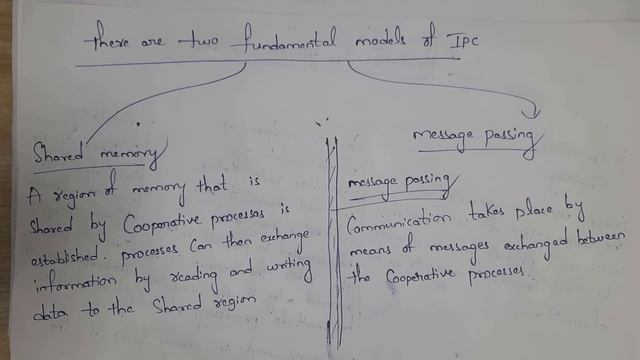 there are two fundamental models of IPC
Shared memory
A region of memory that is
shared by Cooperative processes is
established. processes Can then exchange
information by reading and writing
data to the Shared region
message passing
message passing
Communication takes place by
means of messages exchanged between
the Cooperative processes.